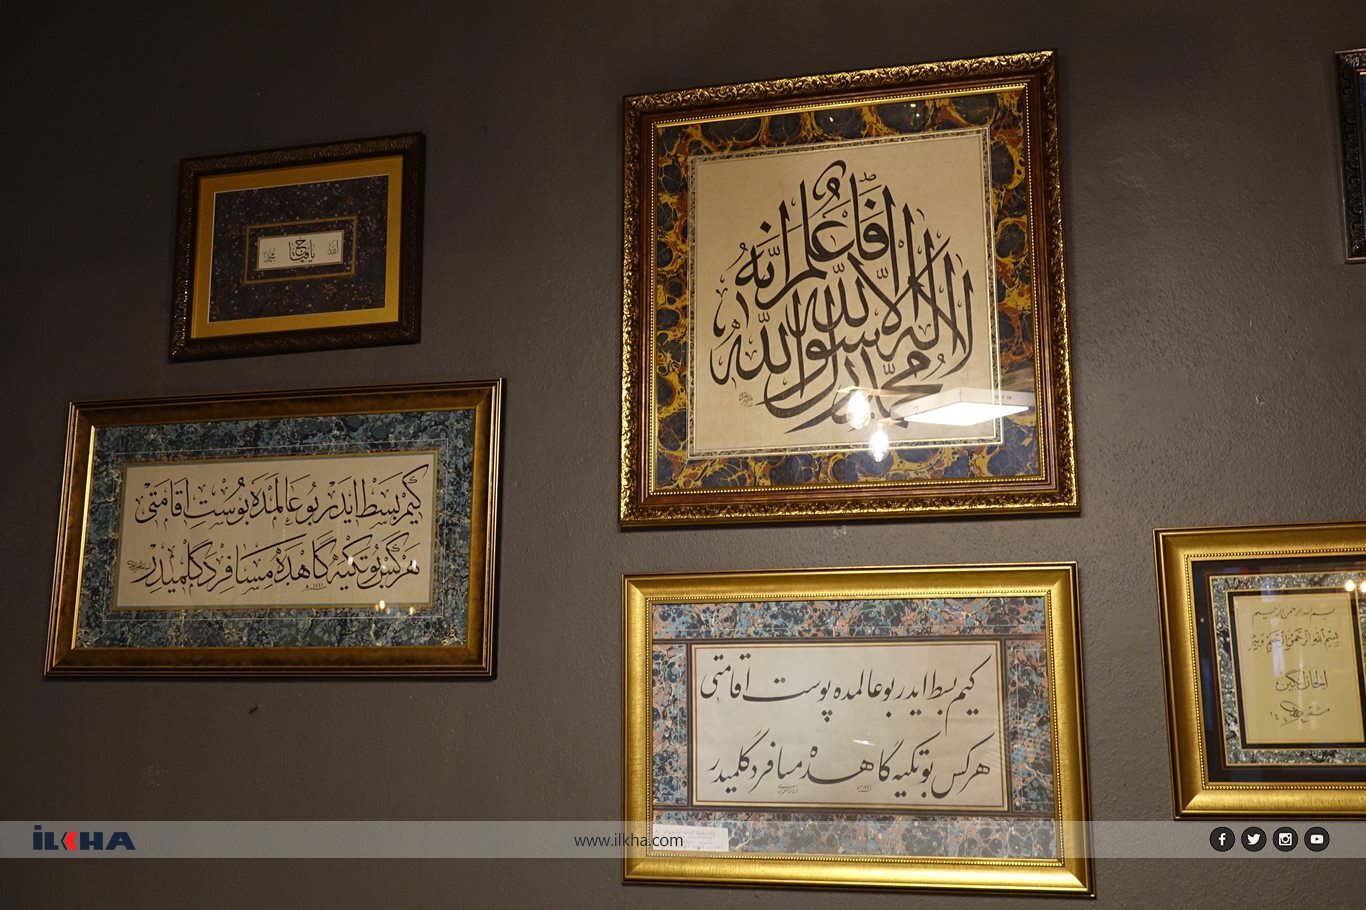 الله
يا فتاح
محمد
فَاعْلَمْ اَنَّهُ
لا اله الا الله
محمد رسول الله
كيم بسط ايدر بو عالمده پوست اقامتى
هركس بو تكيه گاهده مسافر دگلميدر
كيم بسط ايدر بو عالمده پوست اقامتى
هركس بو تكيه گاهده مسافر دگلميدر
١٤٤١
بسم الله الرحمن الرحيم
بسم الله الرحمن الرحيم وبه
İLKHA
www.ilkha.com